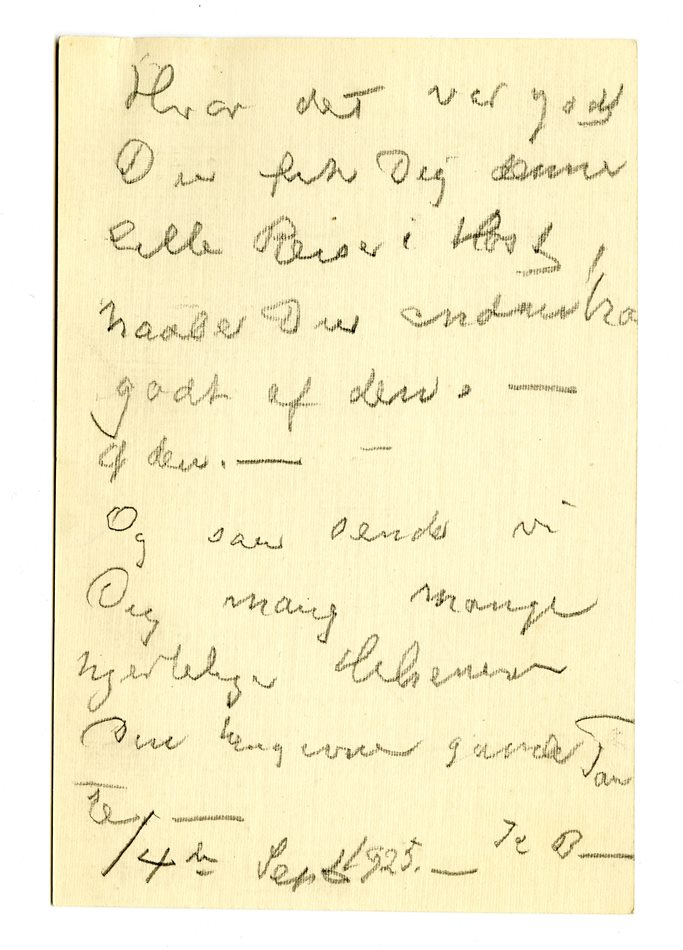 Hvor det var godt
Du fik Dig denne
lille Reise i Høst,
haaber Du endnu har
godt af den. —
af den. — —
Og saa sender vi
Dig mang mange
hjertelige Hilsener
Din hengivne gamle Tan
te, —
/4de Sept 1925. — B —